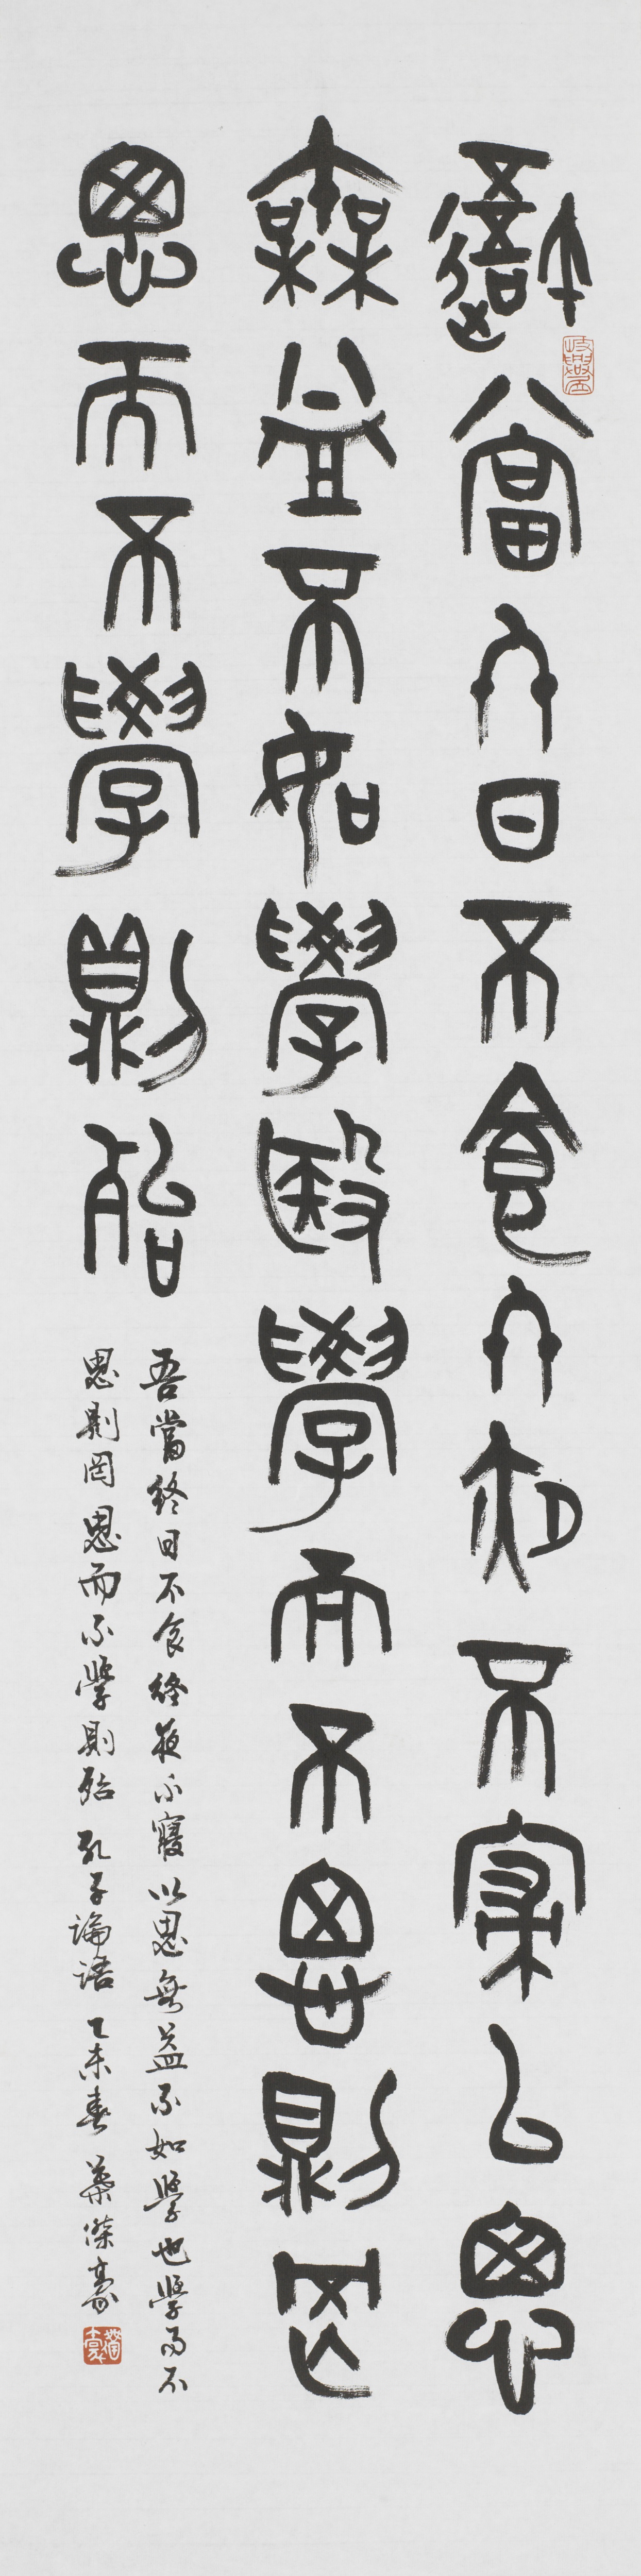 吾當終日不食終夜不寢以思
無益不如學殹學而不思則罔
思而不學則殆
吾當終日不食終夜不寢以思無益不如學也學而不
思則罔思而不學則殆 孔子論語 乙未春 葉傑豪